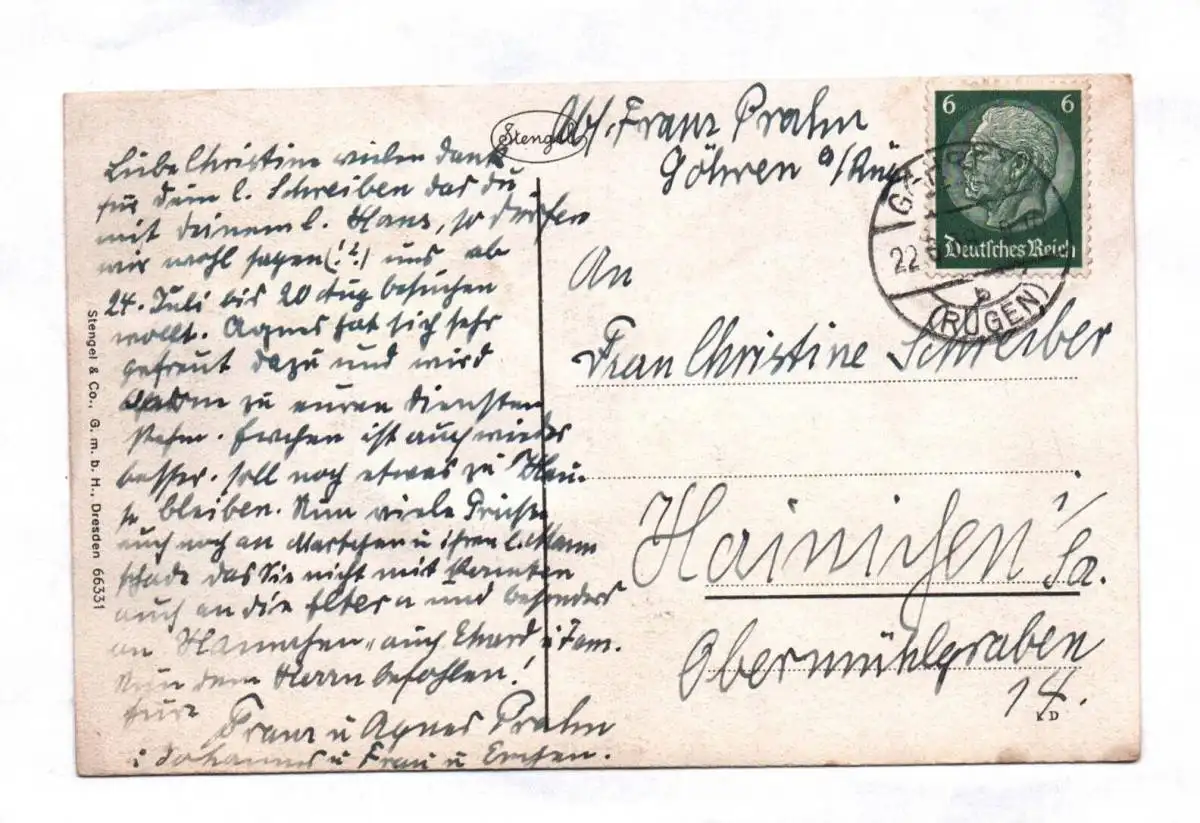 Stengel
Abs. Franz Prahn
Göhren a/Rüg
6 6
Deutsches Reich
22.
b
(RÜGEN)
Liebe Christine vielen Dank
für dein l. Schreiben das du
mit deinem l. Hans, so dürfen
wir wohl sagen (!?) uns ab
24. Juli bis 20 Aug besuchen
wollt. Agnes hat sich sehr
gefreut dazu und wird
zu euren Diensten
stehn. Evchen ist auch wieder
besser. soll noch etwas zu Hau-
se bleiben. Nun viele Grüße
auch noch an u ihren l. Mann
schade das Sie nicht mit konnten
auch an die Eltern und besonders
an Hannchen, auch u Fam.
Nun dem Herrn befohlen!
Eure
Franz u Agnes Prahn
u Johannes u Frau u Evchen.
An
Frau Christine Schreiber
Hainichen i/Sa.
Obermühlgraben
14.
KD
Stengel & Co., G. m. b. H., Dresden 66331